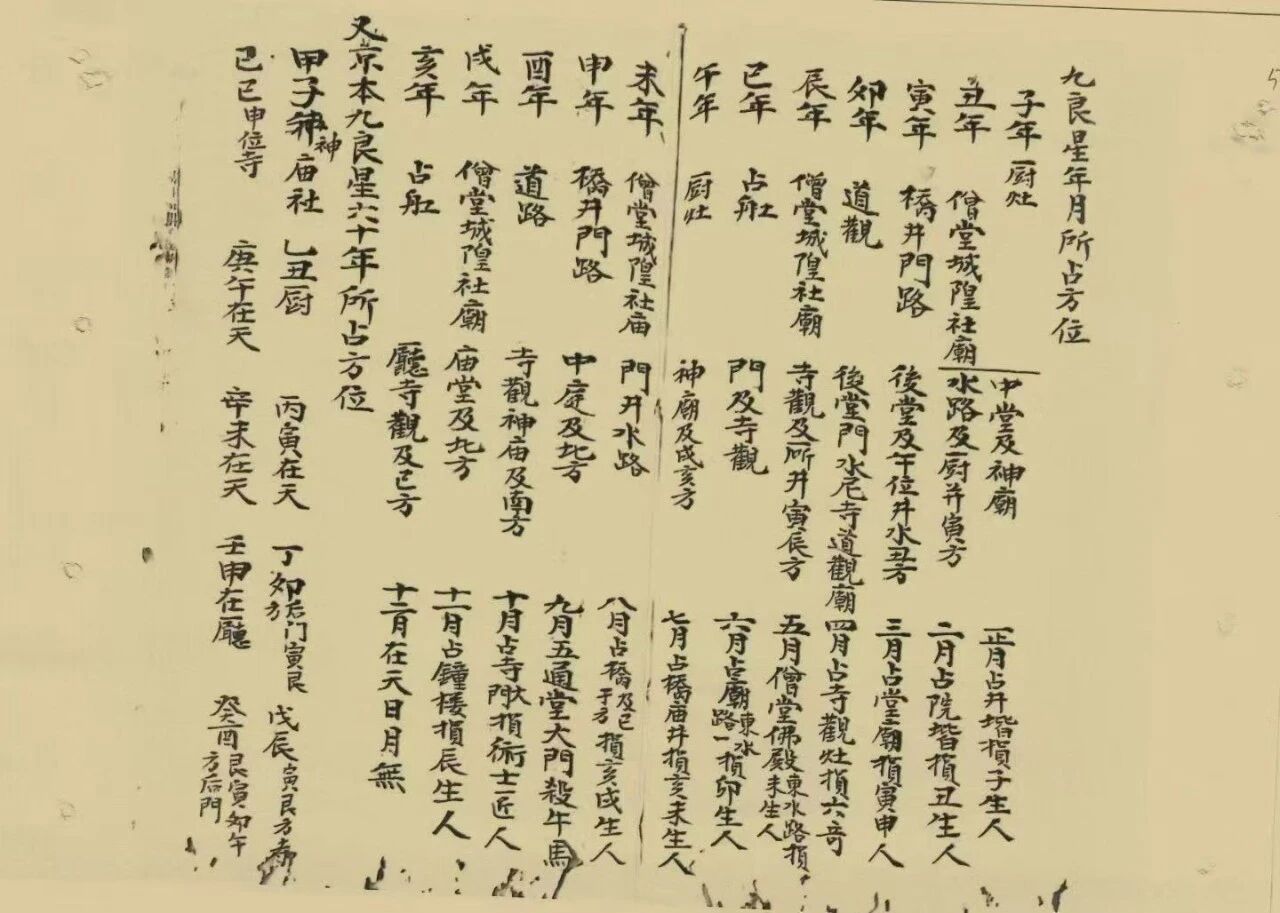 九良星年月所占方位
子年 厨灶 中堂及神廟 正月占井堦損子生人
丑年 僧堂城隍社廟 水路及厨井寅方 二月占院堦損丑生人
寅年 橋井門路 後堂及午位井水丑方 三月占堂廟損寅申人
卯年 道觀 後堂門水尼寺道觀廟 四月占寺觀灶損六音
辰年 僧堂城隍社廟 寺觀及厠井寅辰方 五月僧堂佛殿東水路損未生人
巳年 占船 門及寺觀 六月占廟東水路一損卯生人
午年 厨灶 神廟及戌亥方 七月占橋庙井損亥未生人
未年 僧堂城隍社庙 門井水路 八月占橋及巳于方損亥戌生人
申年 橋井門路 中庭及北方 九月五通堂大門殺牛馬
酉年 道路 寺觀神庙及南方 十月占寺損術士匠人
戌年 僧堂城隍社廟 庙堂及北方 十一月占鐘樓損辰生人
亥年 占船 廳寺觀及巳方 十二月在天日月無
又京本九良星六十年所占方位
甲子神庙社 乙丑厨 丙寅在天 丁卯方后门寅艮 戊辰寅艮方寺
己巳申位寺 庚午在天 辛未在天 壬申在廳 癸酉艮寅卯午方后門